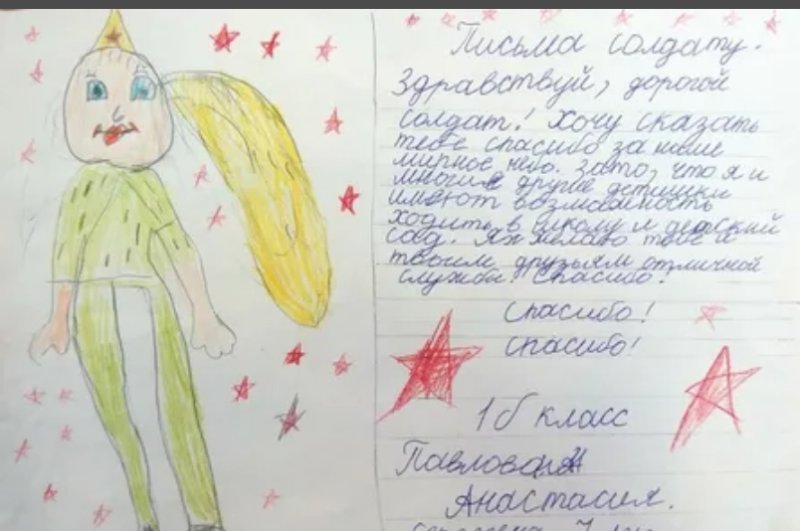 Письма солдату.
Здравствуй, дорогой
солдат! Хочу сказать
тебе спасибо за наше
мирное небо. Зато, что я и
многие другие детишки
имеют возможность
ходить в школу и детский
сад. Я желаю тебе и
твоим друзьям отличной
службы! Спасибо!
Спасибо!
Спасибо!
1б класс
Павлова
Анастасия.